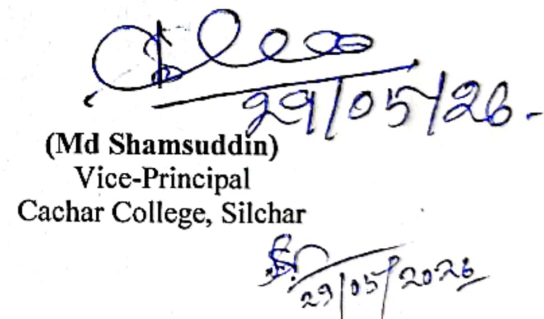 29/05/26.
(Md Shamsuddin)
Vice-Principal
Cachar College, Silchar
29/05/2026